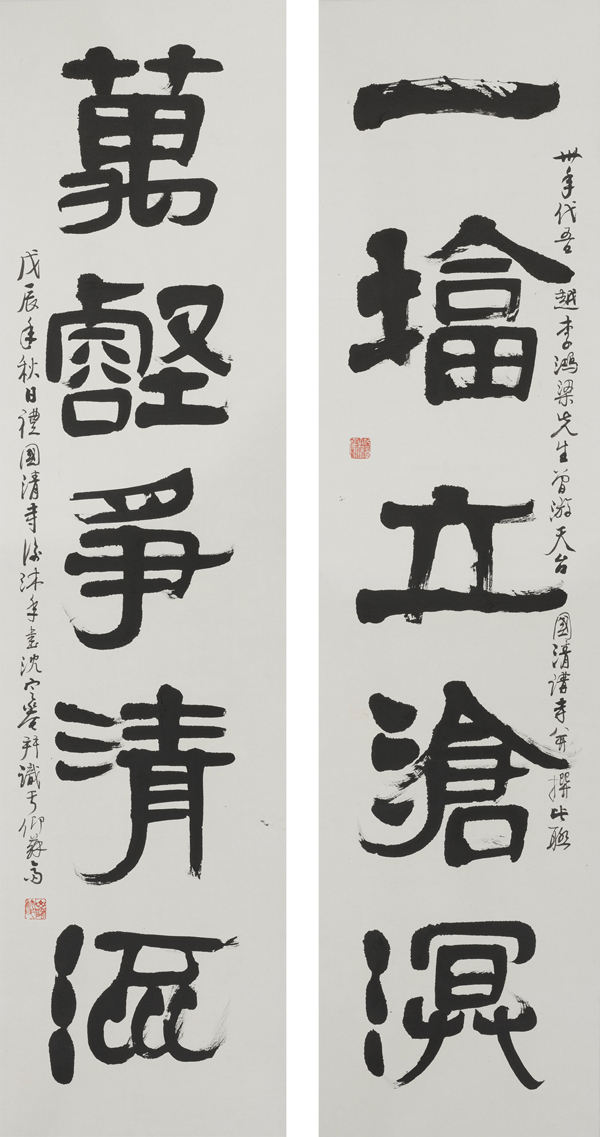 一墖立滄溟
卅年代吾越李鴻梁先生曾游天台國清講寺并撰此聯
萬壑爭清
戊辰年秋日禮國清寺後沐手書沈定庵并識于仰蘇齋